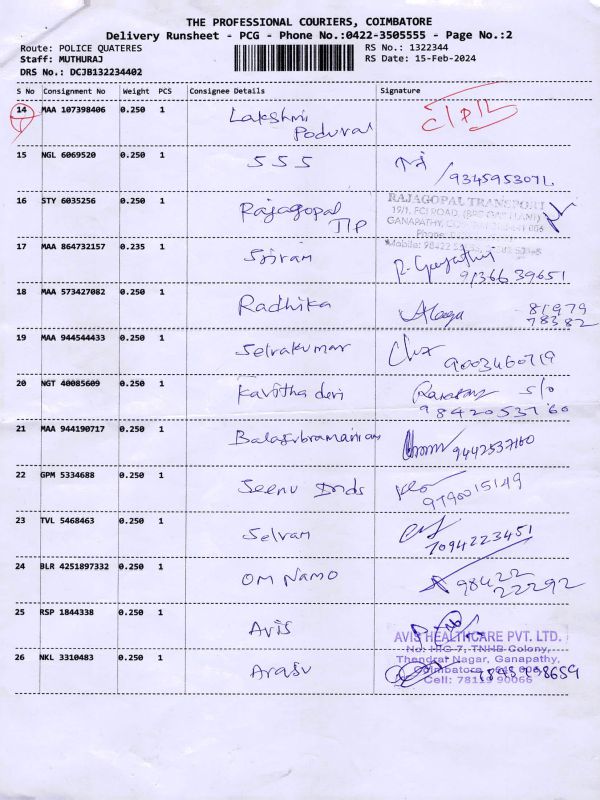 THE PROFESSIONAL COURIERS, COIMBATORE
Delivery Runsheet - PCG - Phone No.:0422-3505555 - Page No.:2
Route: POLICE QUATERES RS No.: 1322344
Staff: MUTHURAJ RS Date: 15-Feb-2024
DRS No.: DCJB132234402
S No Consignment No Weight PCS Consignee Details Signature
14 MAA 107398406 0.250 1 Lakshmi
Poduval
15 NGL 6069520 0.250 1 S S S
/9345953071
16 STY 6035256 0.250 1 Rajagopal
T/P
RAJAGOPAL TRANSPORT
19/1, FCI ROAD,
GANAPATHY,
17 MAA 864732157 0.235 1 Sriram
Mobile: 98422
R. Gayathri
9136639651
18 MAA 573427082 0.250 1 Radhika
81979
78382
19 MAA 944544433 0.250 1 Selvakumar
9003460719
20 NGT 40085609 0.250 1 Kavitha devi
S/o
9842053760
21 MAA 944190717 0.250 1 Balasubramanian
9442537160
22 GPM 5334688 0.250 1 Seenu Inds
9790015149
23 TVL 5468463 0.250 1 Selvam
7094223451
24 BLR 4251897332 0.250 1 OM Namo
98422
22292
25 RSP 1844338 0.250 1 Avis
AVIS HEALTHCARE PVT. LTD.
No: HIG-7, TNHB Colony,
26 NKL 3310483 0.250 1 Arasu
Thendral Nagar, Ganapathy,
Coimbatore
Cell: 78119 90066